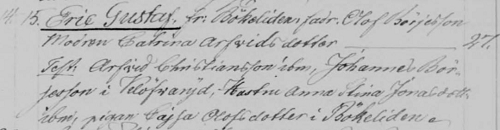 14. 15. Eric Gustaf. fr: Bökeliden, fadr. Olof Börjesson
Modren Catrina Arfvids dotter 27.
Test: Arfvid Christiansson ibm, Johannes Bör-
jesson i Klöfvaryd, Hustru Anna Stina Jonasdott
ibm, pigan Cajsa Olofsdotter i Bökeliden